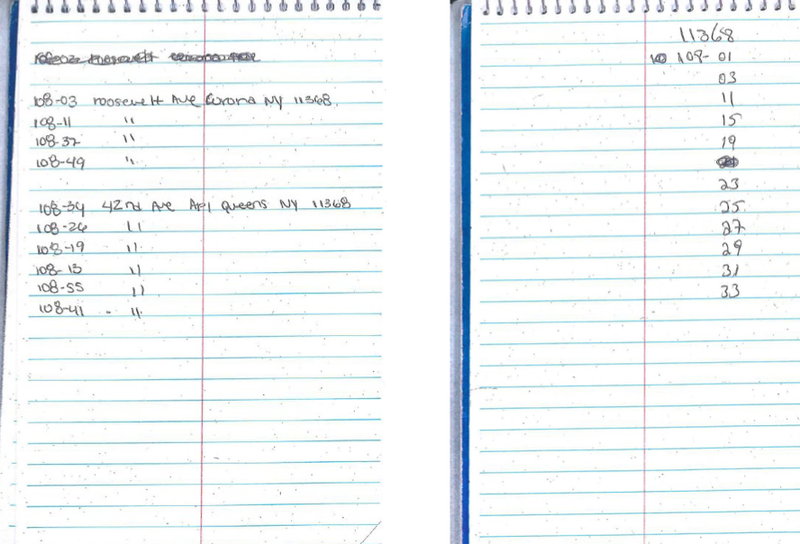 108-03 roosevelt Ave Corona NY 11368
108-11 "
108-37 "
108-49 "
108-34 42nd Ave Ap1 Queens NY 11368
108-26 "
108-19 "
108-13 "
108-55 "
108-41 - "
11368
108-01
03
11
15
19
23
25
27
29
31
33